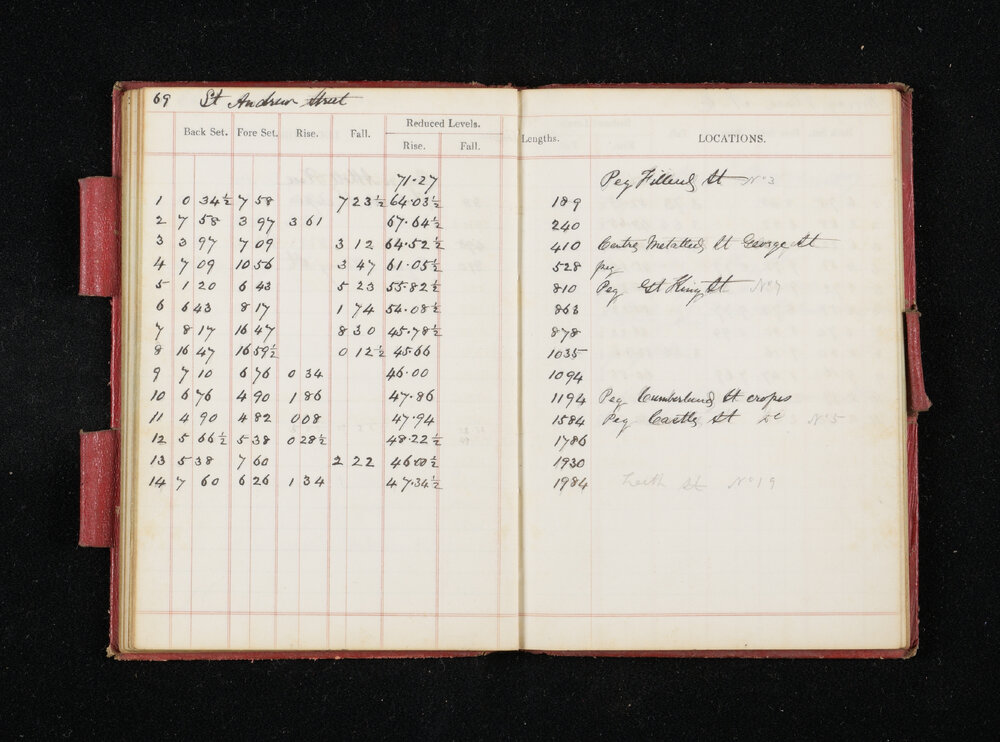 69 St Andrew Street
Back Set. Fore Set. Rise. Fall. Reduced Levels. Lengths. LOCATIONS.
Rise. Fall.
71.27 Peg Filleul St No 3
1 0 34½ 7 58 7 23½ 64.03½ 189
2 7 58 3 97 3 61 67.64½ 240
3 3 97 7 09 3 12 64.52½ 410 Centre Metalled St George St
4 7 09 10 56 3 47 61.05½ 528 peg
5 1 20 6 43 5 23 55.82½ 810 Peg Gt King St No 7
6 6 43 8 17 1 74 54.08½ 863
7 8 17 16 47 8 30 45.78½ 878
8 16 47 16 59½ 0 12½ 45.66 1035
9 7 10 6 76 0 34 46.00 1094
10 6 76 4 90 1 86 47.86 1194 Peg Cumberland St cross
11 4 90 4 82 0 08 47.94 1584 Peg Castle St No 5
12 5 66½ 5 38 0 28½ 48.22½ 1786
13 5 38 7 60 2 22 46.00½ 1930
14 7 60 6 26 1 34 47.34½ 1984 Leith St No 19